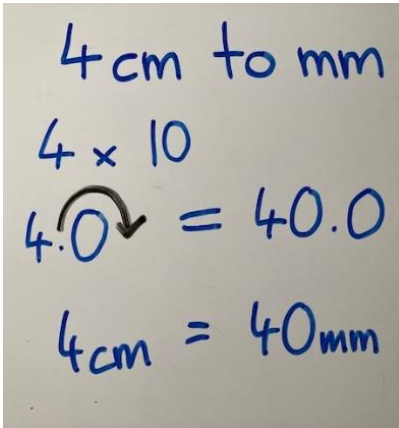 4cm to mm
4 × 10
4.0 = 40.0
4cm = 40mm